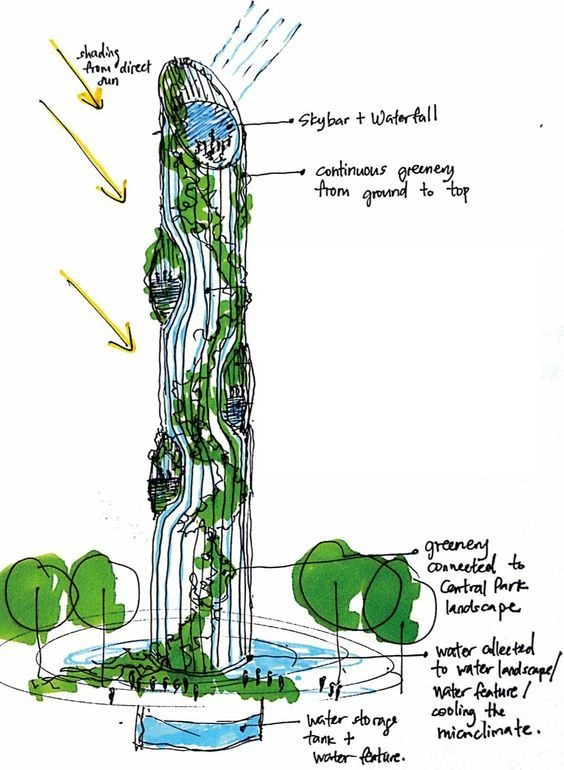 shading
from direct
sun
Skybar + Waterfall
continuous greenery
from ground to top
greenery
connected to
Central Park
landscape
water collected
to water landscape/
water feature /
cooling the
microclimate.
water storage
tank +
water feature.